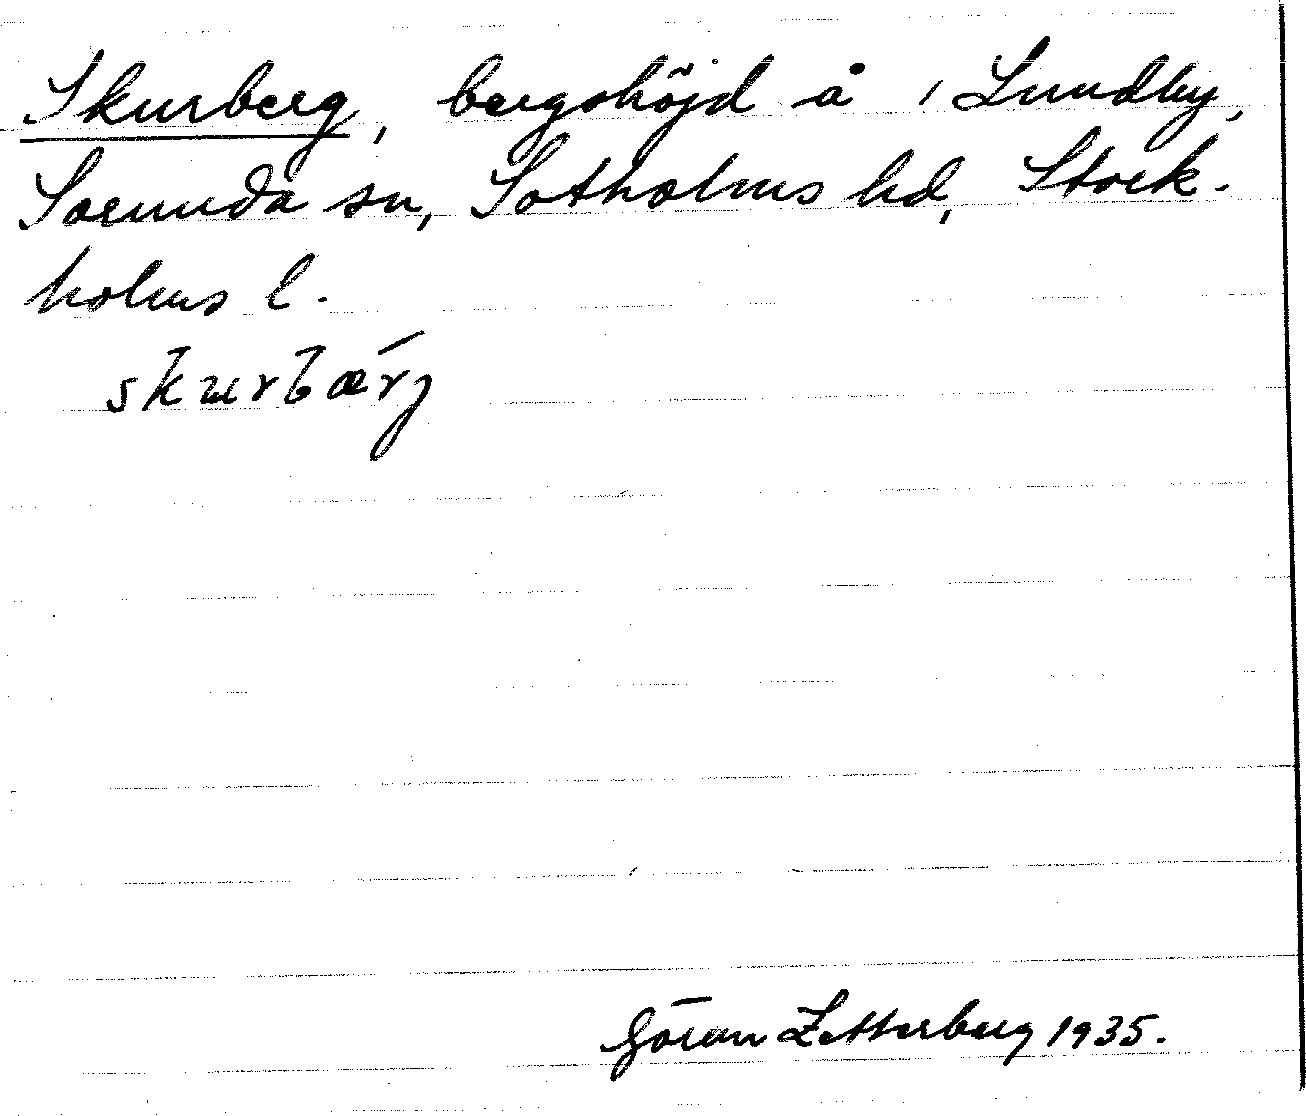 Skurberg, bergshöjd å 1 Lundby,
Sorunda sn, Sotholms hd, Stock-
holms l.
skurbærj
Göran Zetterberg 1935.